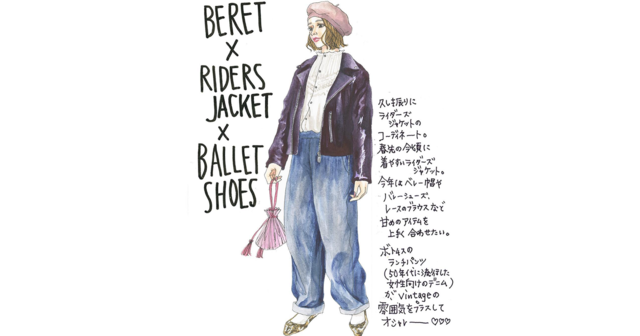 BERET
×
RIDERS
JACKET
×
BALLET
SHOES
久しぶりに
ライダーズ
ジャケットの
コーディネート。
春先の今頃に
着やすいライダーズ
ジャケット。
今年はベレー帽や
バレーシューズ、
レースのブラウスなど
甘めのアイテムを
上手く合わせたい。
ボトムスの
ランチパンツ
(50年代に流行した
女性向けのデニム)
がvintageの
雰囲気をプラスして
オシャレー♡♡♡